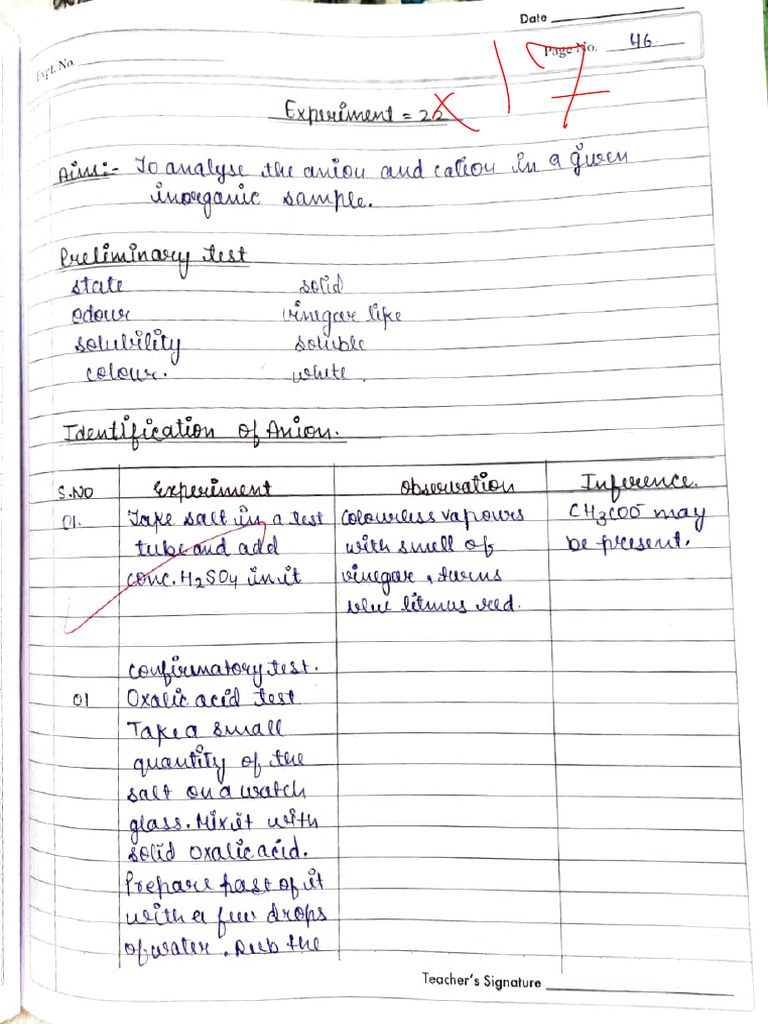 Date
Expt. No.
Page No. 46
Experiment = 22
x 17
Aim:- To analyse the anion and cation in a given
inorganic sample.
Preliminary test
state solid
odour vinegar like
solubility soluble
colour. white.
Identification of Anion.
S.NO Experiment Observation Inference.
01. Take salt in a test colourless vapours CH3COO⁻ may
tube and add with smell of be present.
conc. H2SO4 in it vinegar, turns
blue litmus red.
confirmatory test.
01 Oxalic acid test
Take a small
quantity of the
salt on a watch
glass. Mix it with
solid oxalic acid.
Prepare past of it
with a few drops
of water. Rub the
Teacher's Signature